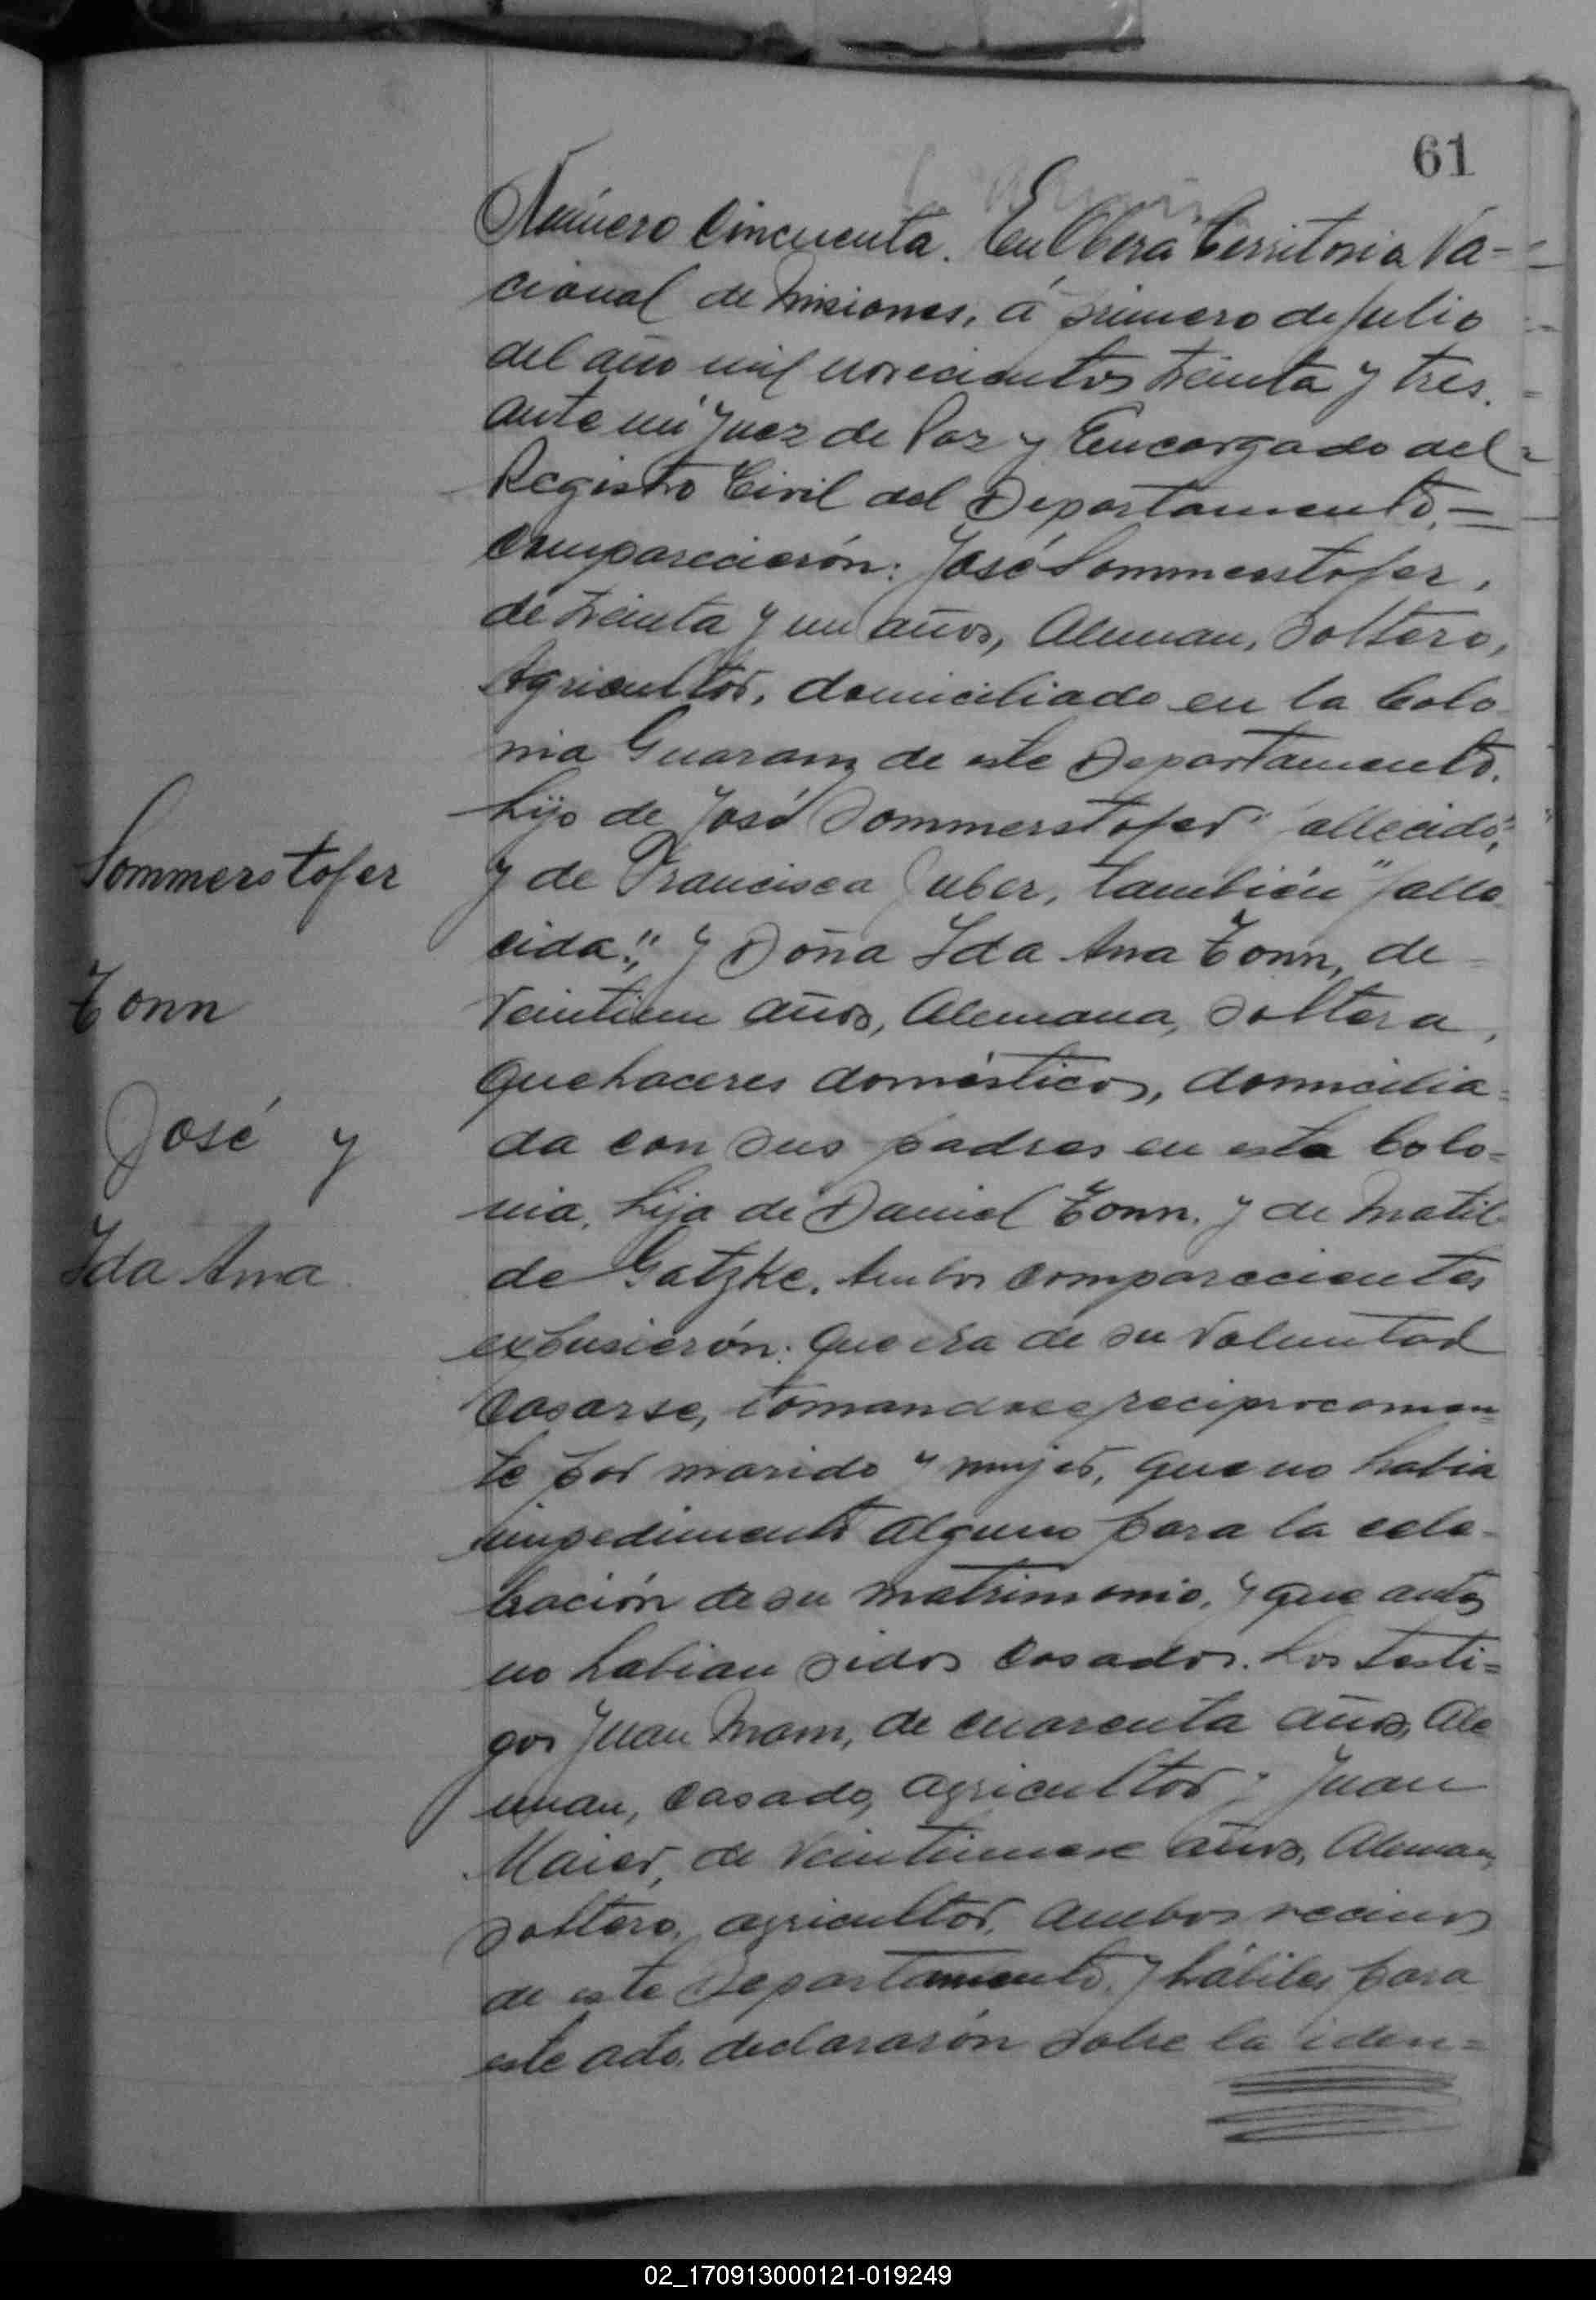 61
Número Cincuenta. En Oberá Territorio Na-
cional de Misiones, á primero de Julio
del año mil novecientos treinta y tres.
ante mi Juez de Paz y Encargado del
Registro Civil del Departamento, =
Comparecierón: José Sommerstofer,
de treinta y un años, Aleman, Soltero,
Agricultor, domiciliado en la Colo
nia Guarany de este Departamento.
hijo de José Sommerstofer "fallecido",
y de Francisca Juber, también "falle
cida", y Doña Ida Ana Tonn, de
Veintiun años, Alemana, Soltera,
Quehaceres domésticos, domicilia-
da con sus padres en esta Colo=
nia, hija de Daniel Tonn, y de Matil-
de Gatzke. Ambos comparecientes
expusierón: Que era de su Voluntad
Casarse, tomandose reciprocamen=
te por marido y mujer, que no habia
impedimento alguno para la cele-
bación de su matrimonio, y que antes
no habian sidos Casados. Los testi=
gos Juan Mam, de cuarenta años, Ale
man, Casado, agricultor; Juan
Maier, de Veintinueve años, Aleman,
soltero, agricultor, ambos vecinos
de este Departamento, y hábiles para
este acto, declararón sobre la iden=
Sommerstofer
Tonn
José y
Ida Ana
02_170913000121-019249